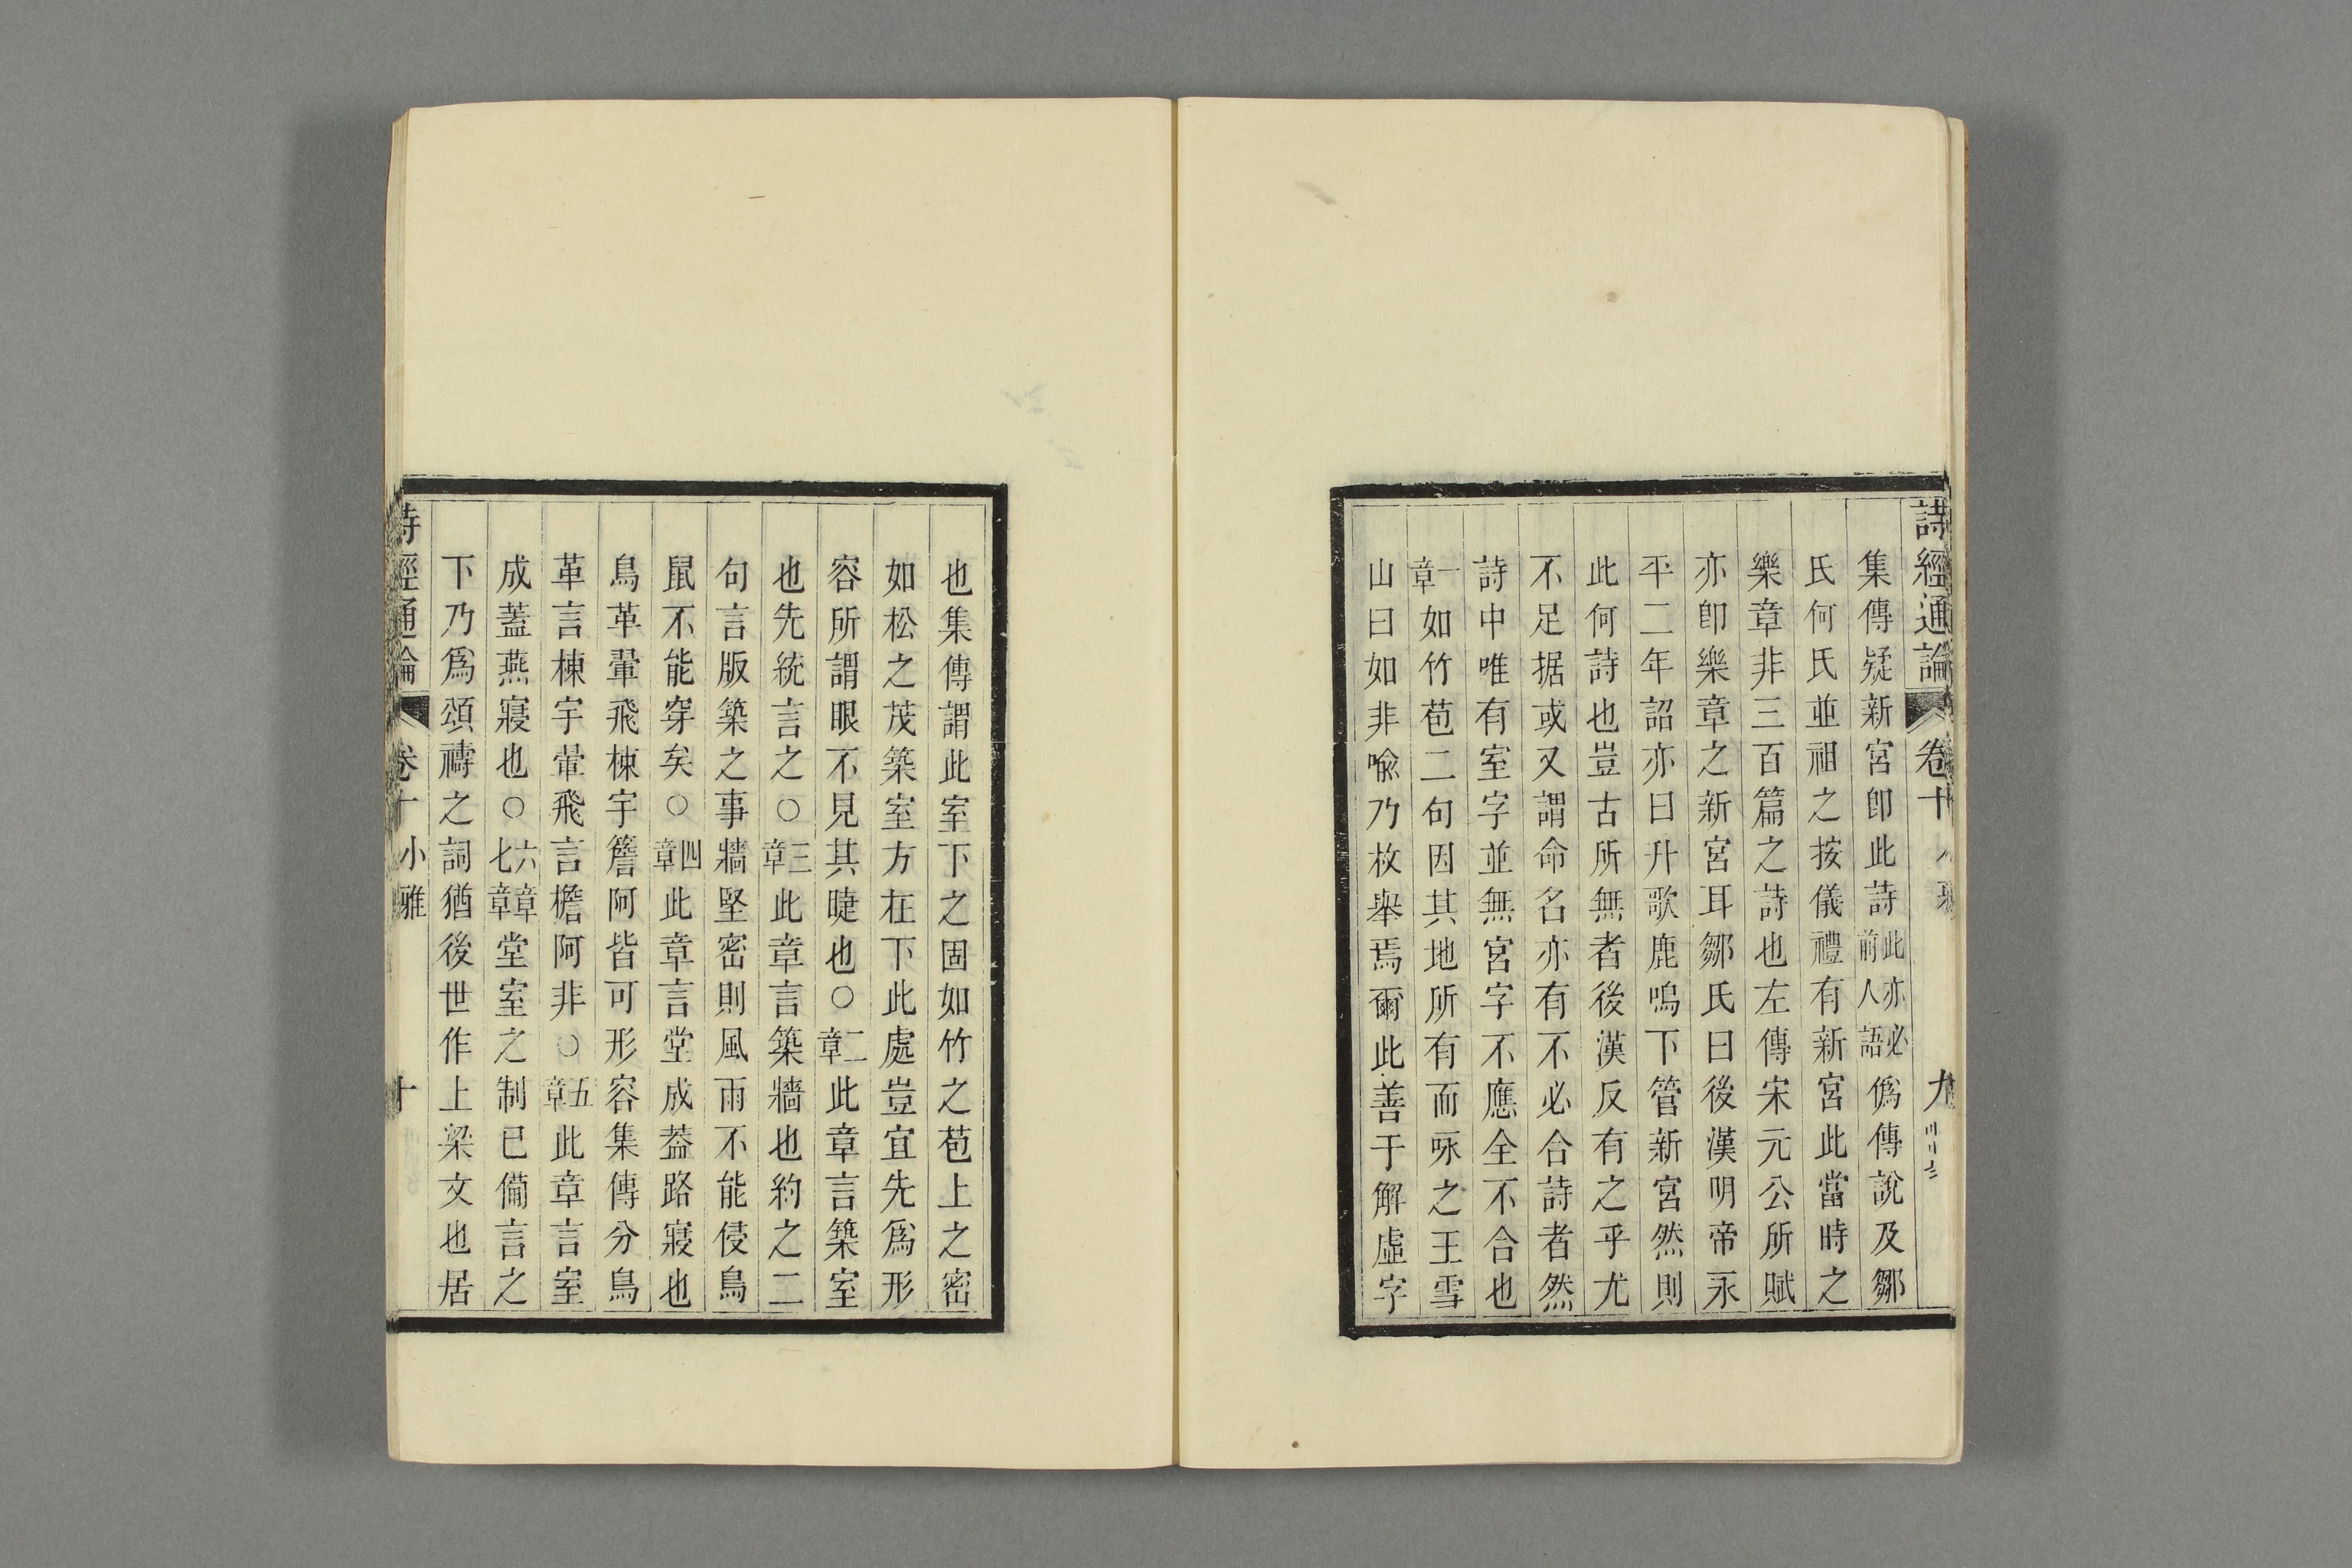 詩經通論 卷十 九
集傳疑新宮卽此詩此亦必前人語僞傳說及鄒
氏何氏並祖之按儀禮有新宮此當時之
樂章非三百篇之詩也左傳宋元公所賦
亦卽樂章之新宮耳鄒氏曰後漢明帝永
平二年詔亦曰升歌鹿鳴下管新宮然則
此何詩也豈古所無者後漢反有之乎尤
不足据或又謂命名亦有不必合詩者然
詩中唯有室字並無宮字不應全不合也
一章如竹苞二句因其地所有而咏之王雪
山曰如非喩乃枚舉焉爾此善于解虛字
也集傳謂此室下之固如竹之苞上之密
如松之茂築室方在下此處豈宜先爲形
容所謂眼不見其睫也○二章此章言築室
也先統言之○三章此章言築牆也約之二
句言版築之事牆堅密則風雨不能侵鳥
鼠不能穿矣○四章此章言堂成葢路寢也
鳥革翬飛棟宇簷阿皆可形容集傳分鳥
革言棟宇翬飛言檐阿非○五章此章言室
成蓋燕寢也○六章七章堂室之制已備言之
下乃爲頌禱之詞猶後世作上梁文也居
詩經通論 卷十 小雅 十